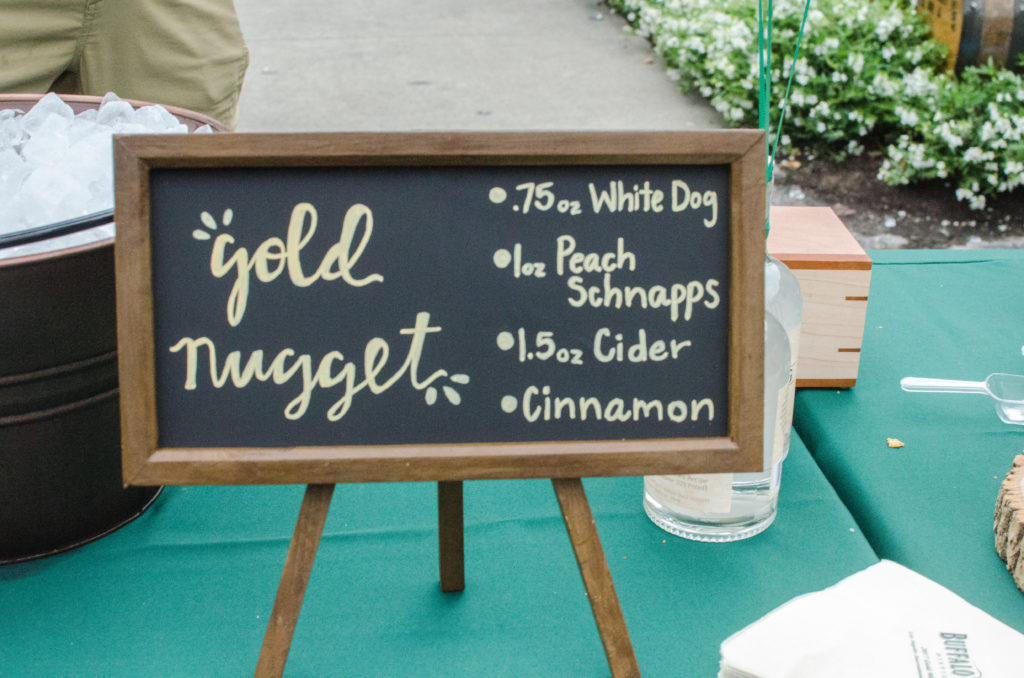 gold
nugget
•.75oz White Dog
•1oz Peach
Schnapps
•1.5oz Cider
•Cinnamon
BUFFALO